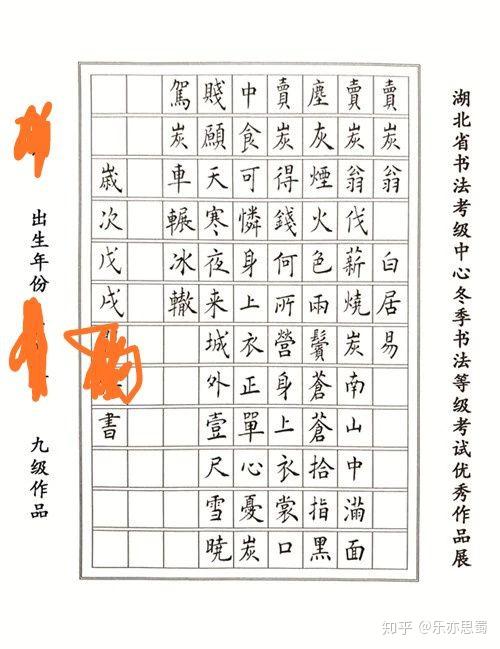 湖北省书法考级中心冬季书法等级考试优秀作品展
賣炭翁 白居易
賣炭翁伐薪燒炭南山中滿面
塵灰煙火色兩鬢蒼蒼拾指黑
賣炭得錢何所營身上衣裳口
中食可憐身上衣正單心憂炭
賤願天寒夜来城外壹尺雪曉
駕炭車輾冰轍
歳次戊戌 書
出生年份 九级作品
知乎 @乐亦思蜀